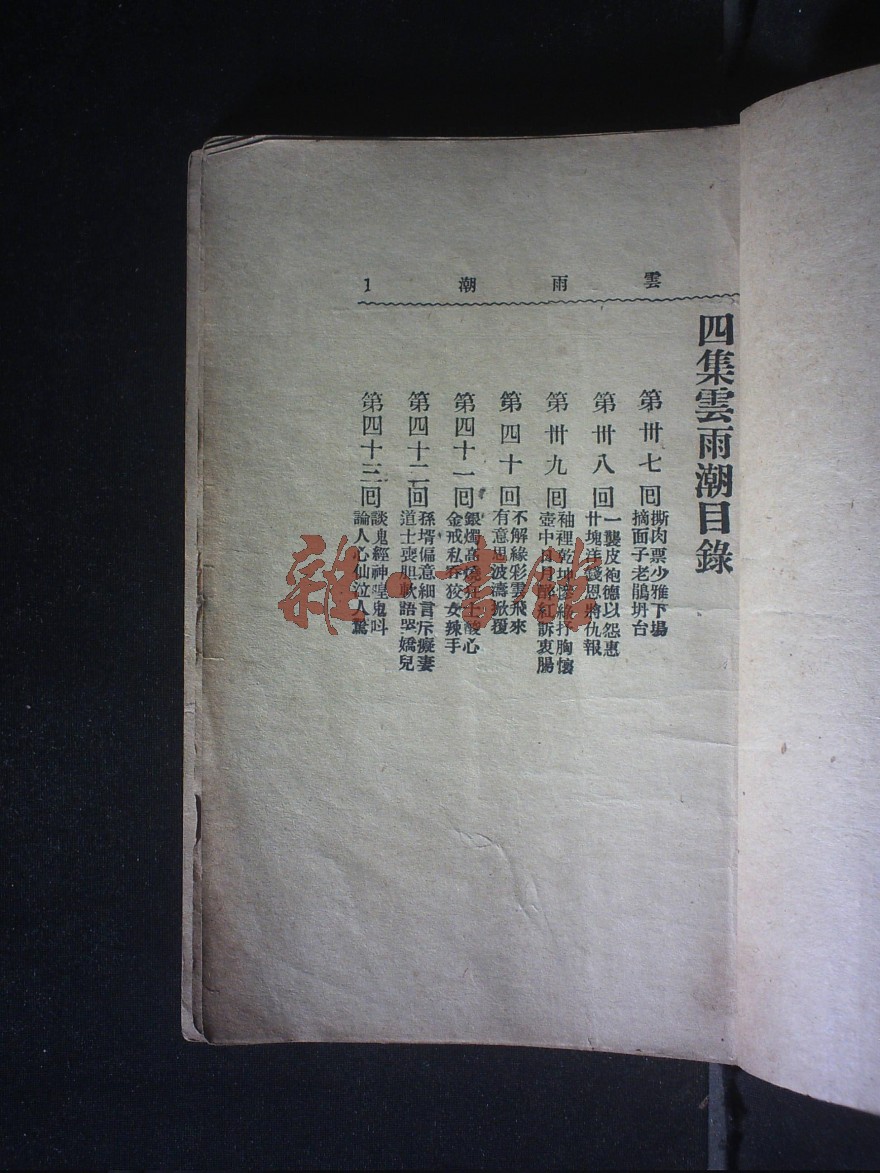 雲雨潮 1
四集雲雨潮目錄
第卅七回
撕肉票少雅下場
摘面子老鵑坍台
第卅八回
一襲皮袍德以怨惠
廿塊洋錢恩將仇報
第卅九回
袖裡乾坤 胸懷
壺中日月醉紅訴衷腸
第四十回
不解緣彩雲飛來
有意思波濤掀覆
第四十一回
銀燭高燒狂士酸心
金戒私吞狡女辣手
第四十二回
孫壻偏意細言斥癡妻
道士喪胆軟語 嬌兒
第四十三回
談鬼經神嚎鬼呌
論人心仙泣人驚
雜·書館